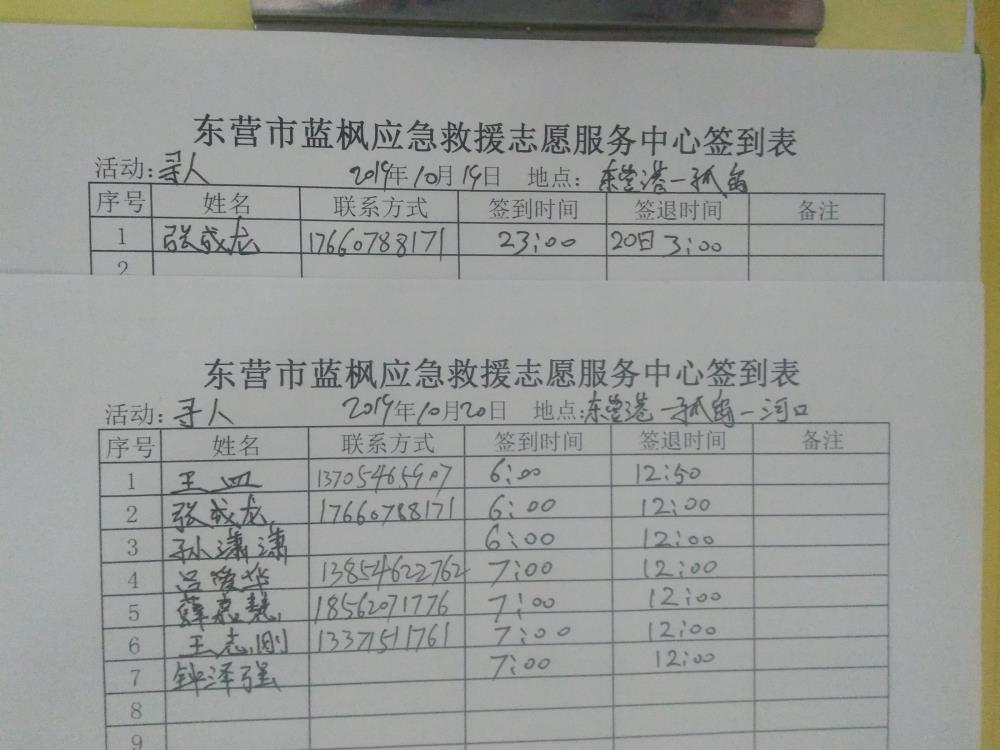 东营市蓝枫应急救援志愿服务中心签到表
活动:寻人 2019年10月19日 地点: 东营港一孤岛
序号 姓名 联系方式 签到时间 签退时间 备注
1 张成龙 17660788171 23:00 20日3:00
2
东营市蓝枫应急救援志愿服务中心签到表
活动:寻人 2019年10月20日 地点:东营港一孤岛一河口
序号 姓名 联系方式 签到时间 签退时间 备注
1 王四 13705465907 6:00 12:50
2 张成龙 17660788171 6:00 12:00
3 孙潇潇 6:00 12:00
4 吕俊华 13854622762 7:00 12:00
5 薛嘉慧 18562071776 7:00 12:00
6 王志刚 13371511761 7:00 12:00
7 钟泽强 7:00 12:00
8
9